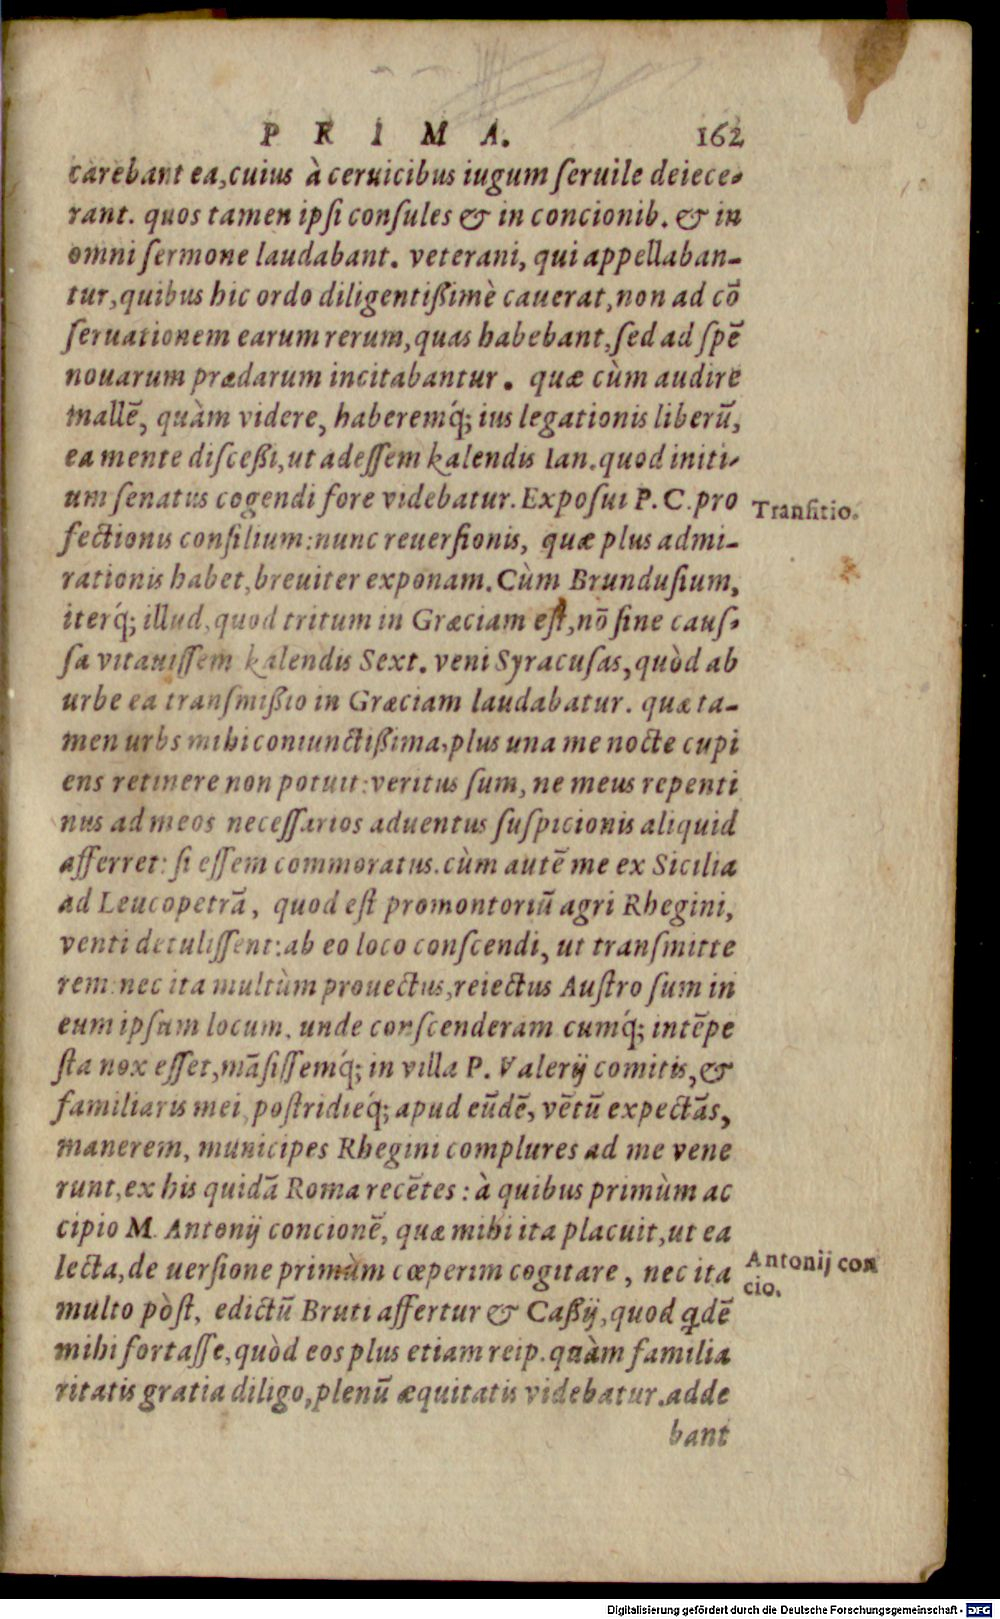 PRIMA. 162
carebant ea, cuius à ceruicibus iugum ſeruile deiece-
rant. quos tamen ipſi conſules & in concionib. & in
omni ſermone laudabant. veterani, qui appellaban-
tur, quibus hic ordo diligentißimè cauerat, non ad cō
ſeruationem earum rerum, quas habebant, ſed ad ſpē
nouarum prædarum incitabantur. quæ cùm audire
mallē, quàm videre, haberemq́; ius legationis liberū,
ea mente diſceßi, ut adeſſem kalendis Ian. quod initi-
um ſenatus cogendi fore videbatur. Expoſui P. C. pro
fectionis conſilium: nunc reuerſionis, quæ plus admi-
rationis habet, breuiter exponam. Cùm Brunduſium,
iterq́; illud, quod tritum in Græciam eſt, nō ſine cauſ-
ſa vitauiſſem kalendis Sext. veni Syracuſas, quòd ab
urbe ea tranſmißio in Græciam laudabatur. quæ ta-
men urbs mihi coniunctißima, plus una me nocte cupi
ens retinere non potuit: veritus ſum, ne meus repenti
nus ad meos neceſſarios aduentus ſuſpicionis aliquid
afferret: ſi eſſem commoratus. cùm autē me ex Sicilia
ad Leucopetrā, quod eſt promontoriū agri Rhegini,
venti detuliſſent: ab eo loco conſcendi, ut tranſmitte
rem: nec ita multùm prouectus, reiectus Auſtro ſum in
eum ipſum locum, unde conſcenderam cumq́; intēpe
ſta nox eſſet, māſiſſemq́; in villa P. Valerij comitis, &
familiaris mei, poſtridieq́; apud eūdē, vētū expectās,
manerem, municipes Rhegini complures ad me vene
runt, ex his quidā Roma recētes: à quibus primùm ac
cipio M. Antonij concionē, quæ mihi ita placuit, ut ea
lecta, de uerſione primùm cœperim cogitare, nec ita
multo pòſt, edictū Bruti affertur & Caßij, quod qdē
mihi fortaſſe, quòd eos plus etiam reip. quàm familia
ritatis gratia diligo, plenū æquitatis videbatur. adde
bant
Tranſitio.
Antonij con
cio.
Digitalisierung gefördert durch die Deutsche Forschungsgemeinschaft - DFG